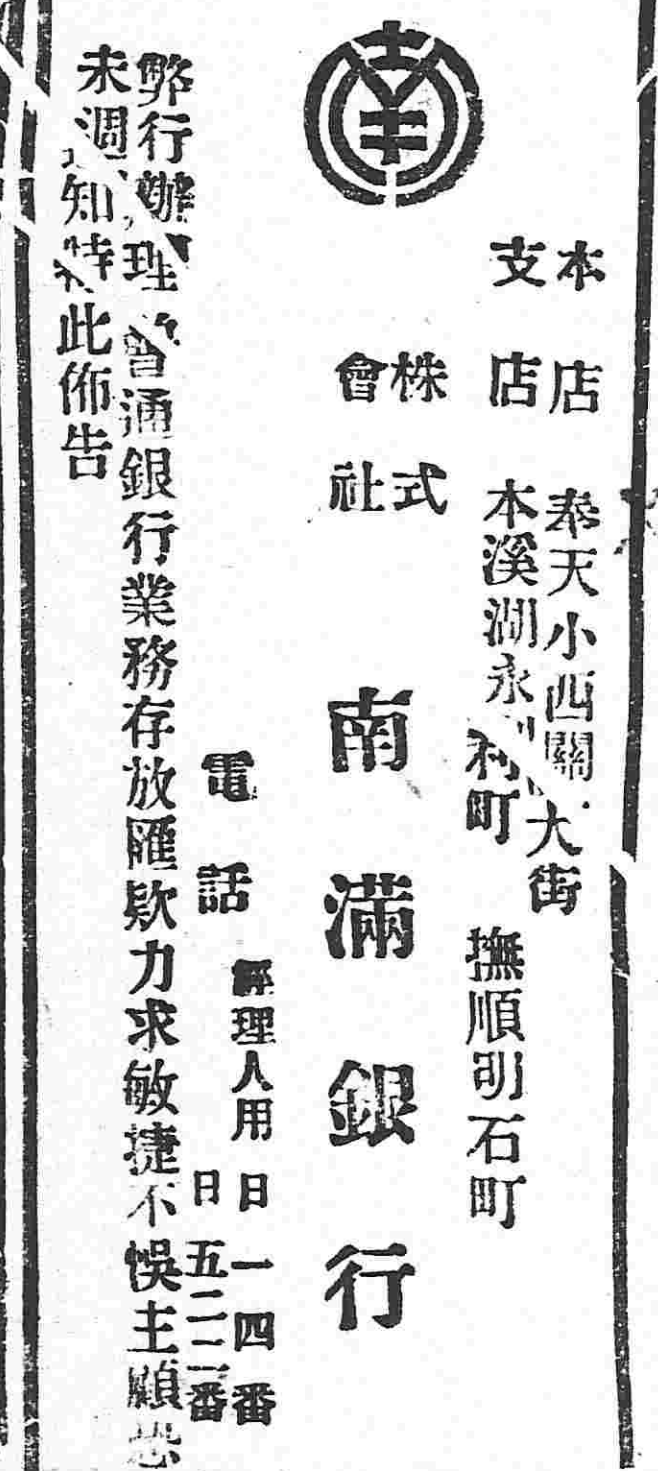 本店 奉天小西關大街
支店 本溪湖永利町 撫順明石町
株式
會社
南滿銀行
電話
經理人用 日 一四番
日 五二二番
弊行辦理普通銀行業務存放匯欵力求敏捷不悞主顧恐
未週知特此佈告